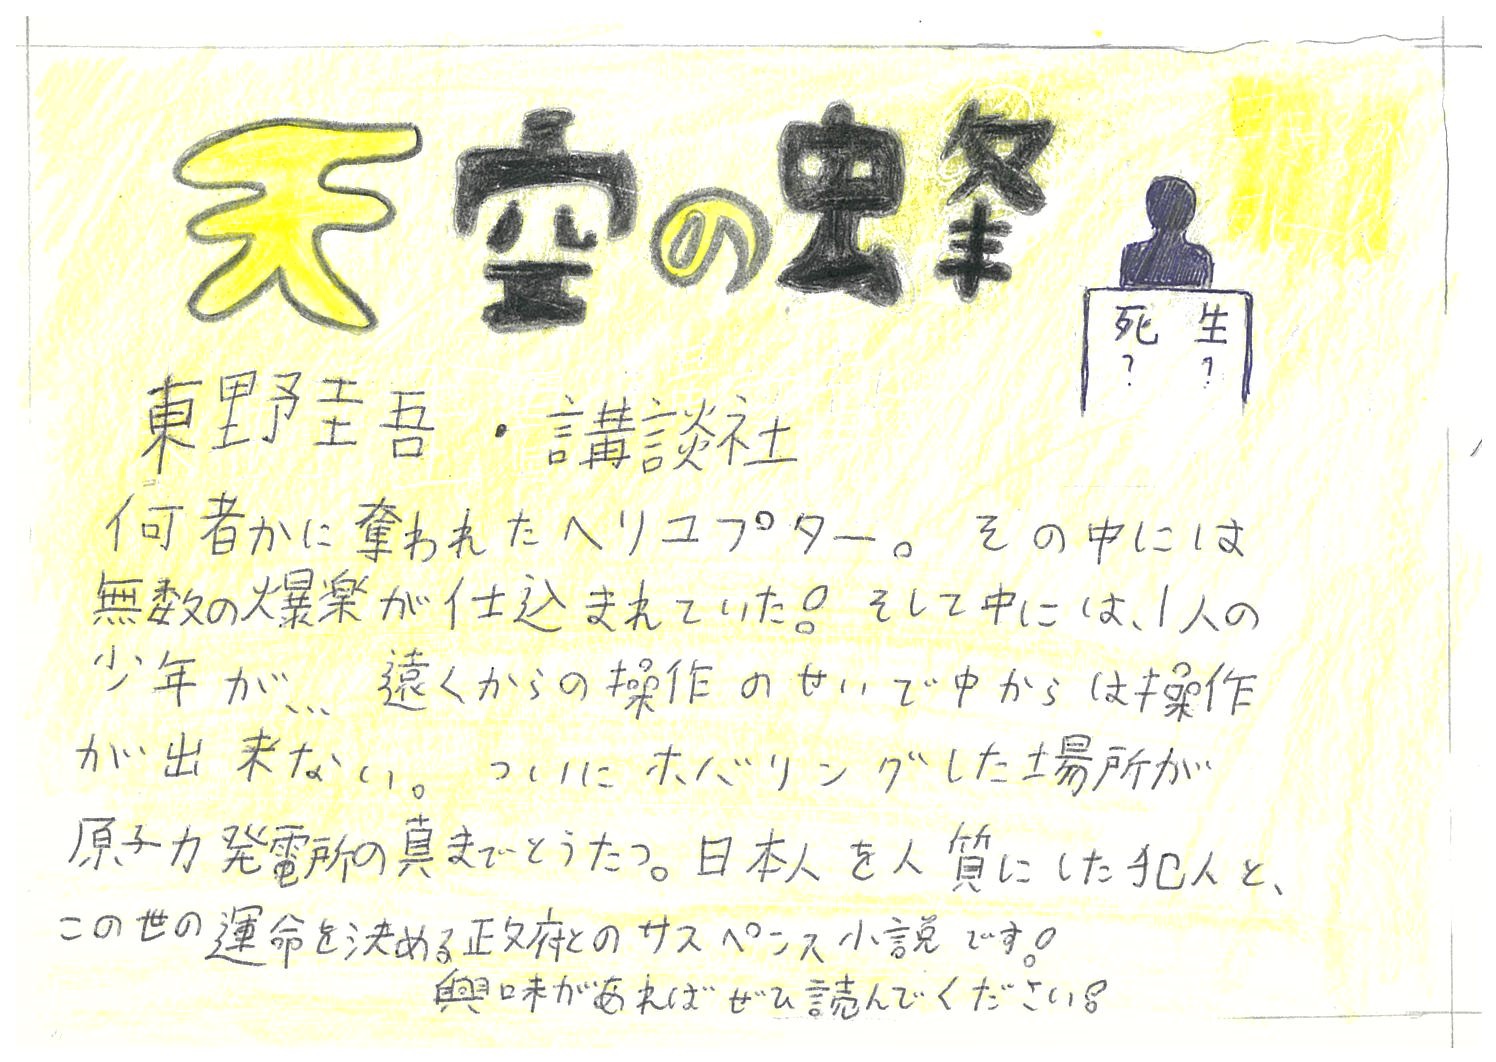 天空の蜂
死 生
? ?
東野圭吾・講談社
何者かに奪われたヘリコプター。その中には
無数の爆楽が仕込まれていた!そして中には、1人の
少年が... 遠くからの操作のせいで中からは操作
が出来ない。ついにホバリングした場所が
原子力発電所の真までとうたつ。日本人を人質にした犯人と、
この世の運命を決める政府とのサスペンス小説です!
興味があればぜひ読んでください!